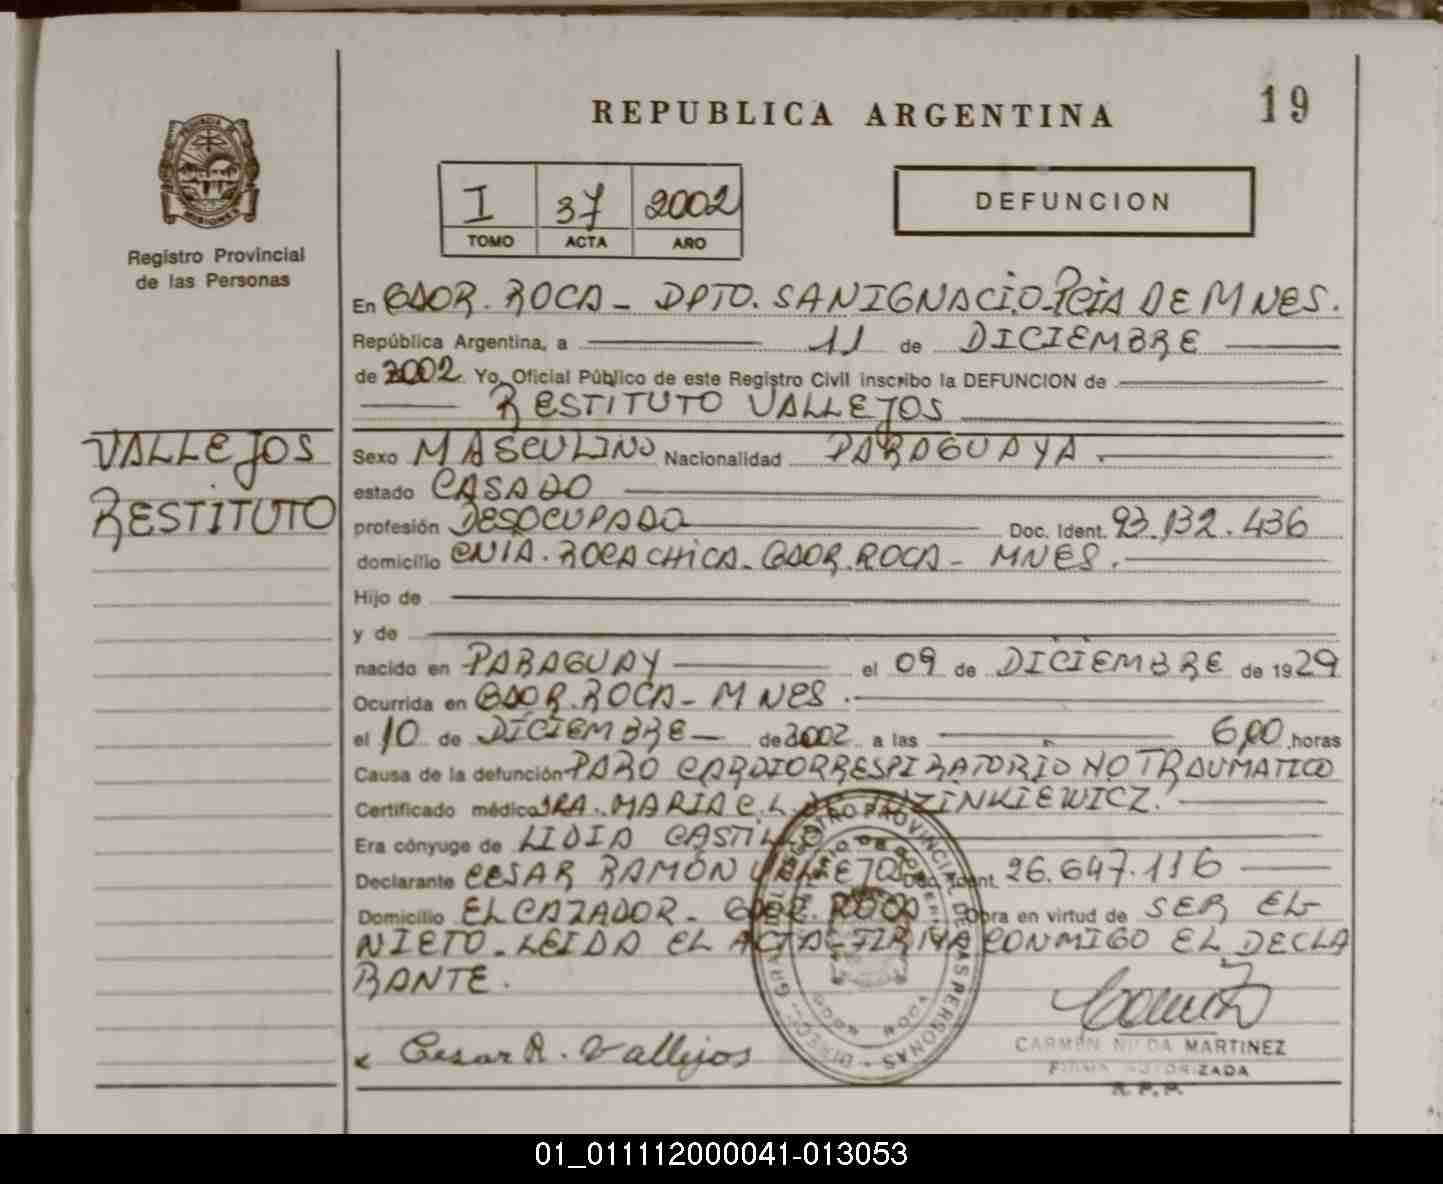 19
REPUBLICA ARGENTINA
PROVINCIA DE MISIONES
Registro Provincial
de las Personas
I 37 2002
TOMO ACTA AÑO
DEFUNCION
En GDOR. ROCA - DPTO. SAN IGNACIO - PCIA DE MNES.
República Argentina, a 11 de DICIEMBRE
de 2002 Yo, Oficial Público de este Registro Civil inscribo la DEFUNCION de
RESTITUTO VALLEJOS
VALLEJOS
RESTITUTO
Sexo MASCULINO Nacionalidad PARAGUAYA.
estado CASADO
profesión DESOCUPADO Doc. Ident. 93.132.436
domicilio CNIA. ROCA CHICA - GDOR. ROCA - MNES.
Hijo de
y de
nacido en PARAGUAY el 09 de DICIEMBRE de 1929
Ocurrida en GDOR. ROCA - MNES.
el 10 de DICIEMBRE de 2002 a las 6,00 horas
Causa de la defunción PARO CARDIORRESPIRATORIO NO TRAUMATICO
Certificado médico DRA. MARIA C. L. DE
Era cónyuge de LIDIA CASTILLO
Declarante CESAR RAMÓN VALLEJOS Doc. Ident. 26.647.116
Domicilio EL CAZADOR - GDOR. ROCA Obra en virtud de SER EL
NIETO - LEIDA EL ACTA FIRMA CONMIGO EL DECLA
RANTE.
x Cesar R. Vallejos
CARMEN NILDA MARTINEZ
FIRMA AUTORIZADA
R. P. P.
REGISTRO PROVINCIAL DE LAS PERSONAS
GDOR ROCA
01_011112000041-013053